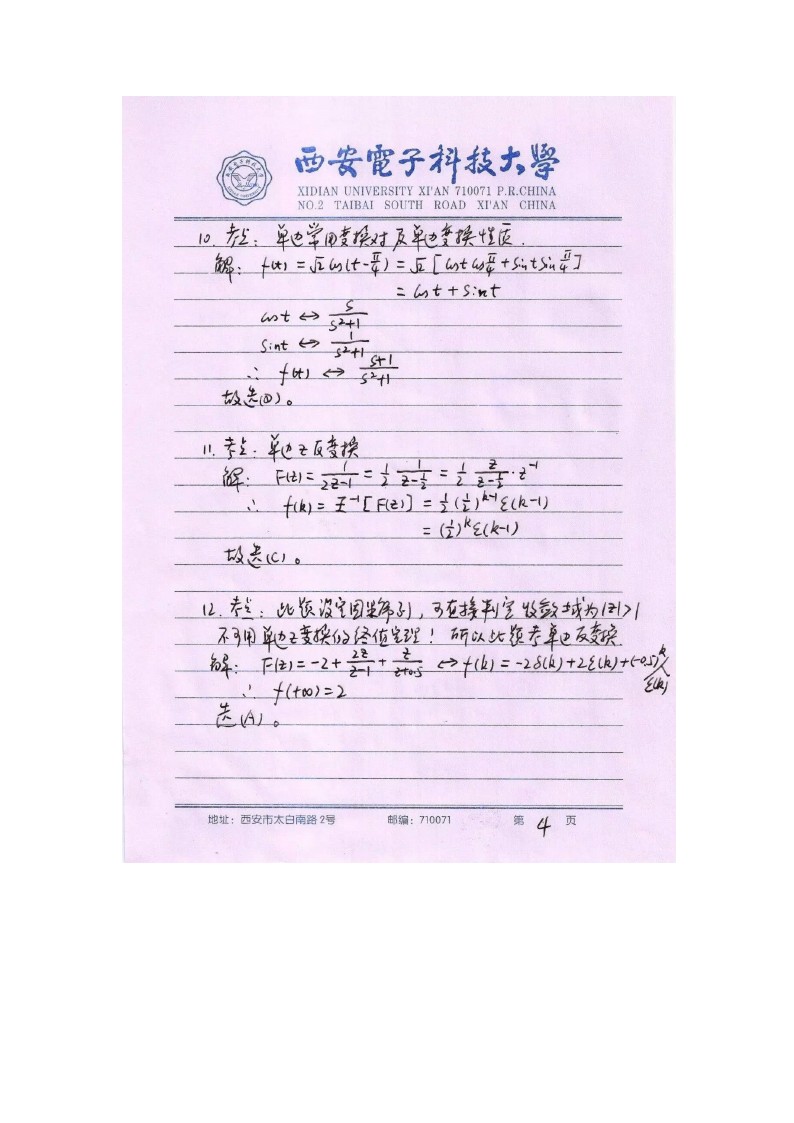 西安電子科技大學
XIDIAN UNIVERSITY XI'AN 710071 P.R.CHINA
NO.2 TAIBAI SOUTH ROAD XI'AN CHINA
10. 考点：单边常用变换对及单边变换性质.
解： f(t) = √2 cos(t-π/4) = √2 [ cost cos π/4 + sint sin π/4 ]
= cost + sint
cost ↔ s/(s²+1)
sint ↔ 1/(s²+1)
∴ f(t) ↔ (s+1)/(s²+1)
故选(D)。
11. 考点：单边z反变换
解： F(z) = 1/(2z-1) = 1/2 1/(z-1/2) = 1/2 z/(z-1/2) · z⁻¹
∴ f(k) = Z⁻¹[F(z)] = 1/2 (1/2)^(k-1) ε(k-1)
= (1/2)^k ε(k-1)
故选(C)。
12. 考点：此题设定因果序列，可直接判定收敛域为|z|>1
不可用单边z变换的终值定理！所以此题考单边反变换
解： F(z) = -2 + 2z/(z-1) + z/(z+0.5) ↔ f(k) = -2δ(k) + 2ε(k) + (-0.5)^k ε(k)
∴ f(+∞) = 2
选(A)。
地址：西安市太白南路2号 邮编：710071 第 4 页